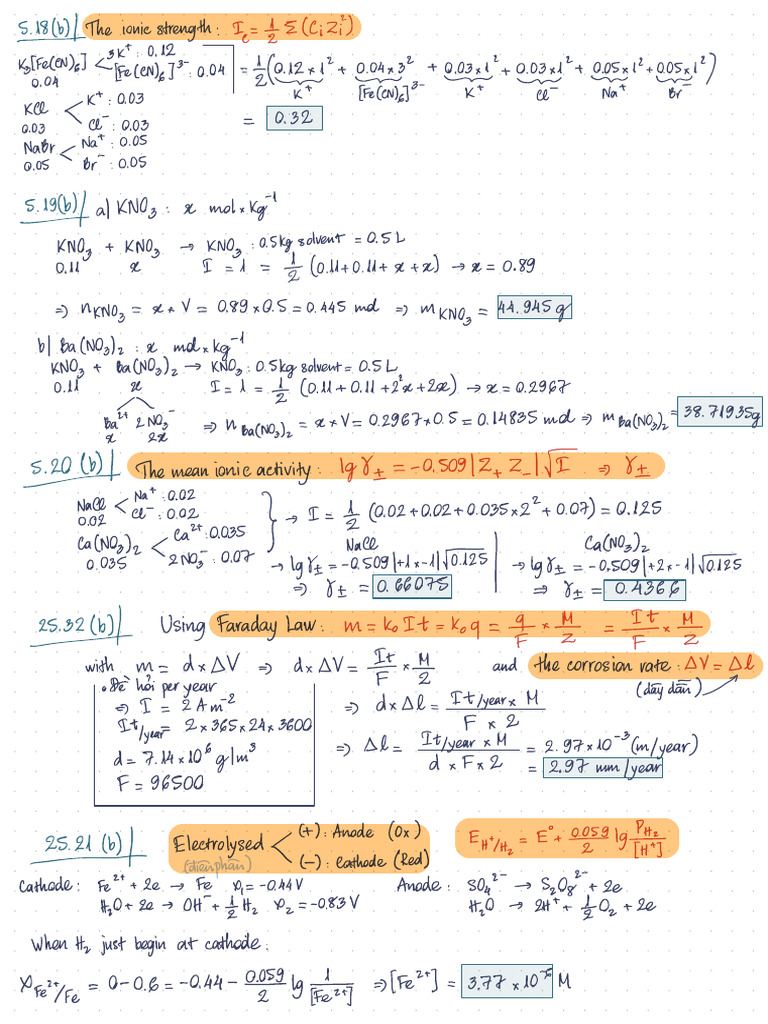 5.18(b) The ionic strength: I_c = 1/2 Σ(C_i Z_i²)
K₃[Fe(CN)₆] 3K⁺: 0.12
0.04 [Fe(CN)₆]³⁻: 0.04
= 1/2 (0.12×1² + 0.04×3² + 0.03×1² + 0.03×1² + 0.05×1² + 0.05×1²)
K⁺ [Fe(CN)₆]³⁻ K⁺ Cl⁻ Na⁺ Br⁻
KCl K⁺: 0.03
0.03 Cl⁻: 0.03
= 0.32
NaBr Na⁺: 0.05
0.05 Br⁻: 0.05
5.19(b) a) KNO₃: x mol×Kg⁻¹
KNO₃ + KNO₃ → KNO₃: 0.5kg solvent = 0.5L
0.11 x I = 1 = 1/2 (0.11+0.11+x+x) → x = 0.89
⇒ n_KNO₃ = x×V = 0.89×0.5 = 0.445 mol ⇒ m_KNO₃ = 44.945g
b) Ba(NO₃)₂: x mol×Kg⁻¹
KNO₃ + Ba(NO₃)₂ → KNO₃: 0.5kg solvent = 0.5L
0.11 x I = 1 = 1/2 (0.11+0.11+2²x+2x) → x = 0.2967
Ba²⁺ 2NO₃⁻
x 2x
⇒ n_Ba(NO₃)₂ = x×V = 0.2967×0.5 = 0.14835 mol ⇒ m_Ba(NO₃)₂ = 38.71935g
5.20(b) The mean ionic activity: lgγ± = -0.509|Z₊ Z₋|√I ⇒ γ±
NaCl Na⁺: 0.02
0.02 Cl⁻: 0.02
Ca(NO₃)₂ Ca²⁺: 0.035
0.035 2NO₃⁻: 0.07
→ I = 1/2 (0.02+0.02+0.035×2²+0.07) = 0.125
NaCl
→ lgγ± = -0.509|+1×-1|√0.125
⇒ γ± = 0.66075
Ca(NO₃)₂
→ lgγ± = -0.509|+2×-1|√0.125
⇒ γ± = 0.4366
25.32(b) Using Faraday Law: m = k₀It = k₀q = q/F × M/Z = It/F × M/Z
with m = d×ΔV ⇒ d×ΔV = It/F × M/2 and the corrosion rate: ΔV = Δl
(dây dẫn)
• Đề hỏi per year
⇒ I = 2Am⁻²
It/year = 2×365×24×3600
d = 7.14×10⁶ g/m³
F = 96500
⇒ d×Δl = It/year × M / F×2
⇒ Δl = It/year × M / d×F×2 = 2.97×10⁻³ (m/year)
= 2.97 mm/year
25.21(b) Electrolysed (+): Anode (Ox)
(điện phân) (-): Cathode (Red)
E_H⁺/H₂ = E° + 0.059/2 lg P_H₂/[H⁺]
Cathode: Fe²⁺ + 2e → Fe φ₁ = -0.44V
H₂O + 2e → OH⁻ + 1/2 H₂ φ₂ = -0.83V
Anode: SO₄²⁻ → S₂O₈²⁻ + 2e
H₂O → 2H⁺ + 1/2 O₂ + 2e
When H₂ just begin at cathode:
φ_Fe²⁺/Fe = 0-0.6 = -0.44 - 0.059/2 lg 1/[Fe²⁺] ⇒ [Fe²⁺] = 3.77×10⁻⁶ M